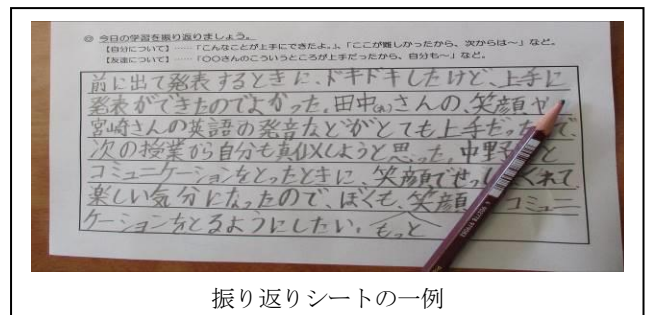 ◎ 今日の学習を振り返りましょう。
【自分について】……「こんなことが上手にできたよ。」、「ここが難しかったから、次からは～」など。
【友達について】……「〇〇さんのこういうところが上手だったから、自分も～」など。
前に出て発表するときに、ドキドキしたけど、上手に
発表ができたのでよかった。田中(あ)さんの、笑顔や
宮崎さんの英語の発音などがとても上手だっ で、
次の授業から自分も真似しようと思った。中野 と
コミュニケーションをとったときに、笑顔でせっし くれて
楽しい気分になったので、ぼくも、笑顔 コミュニ
ケーションをとるようにしたい。もっと
振り返りシートの一例